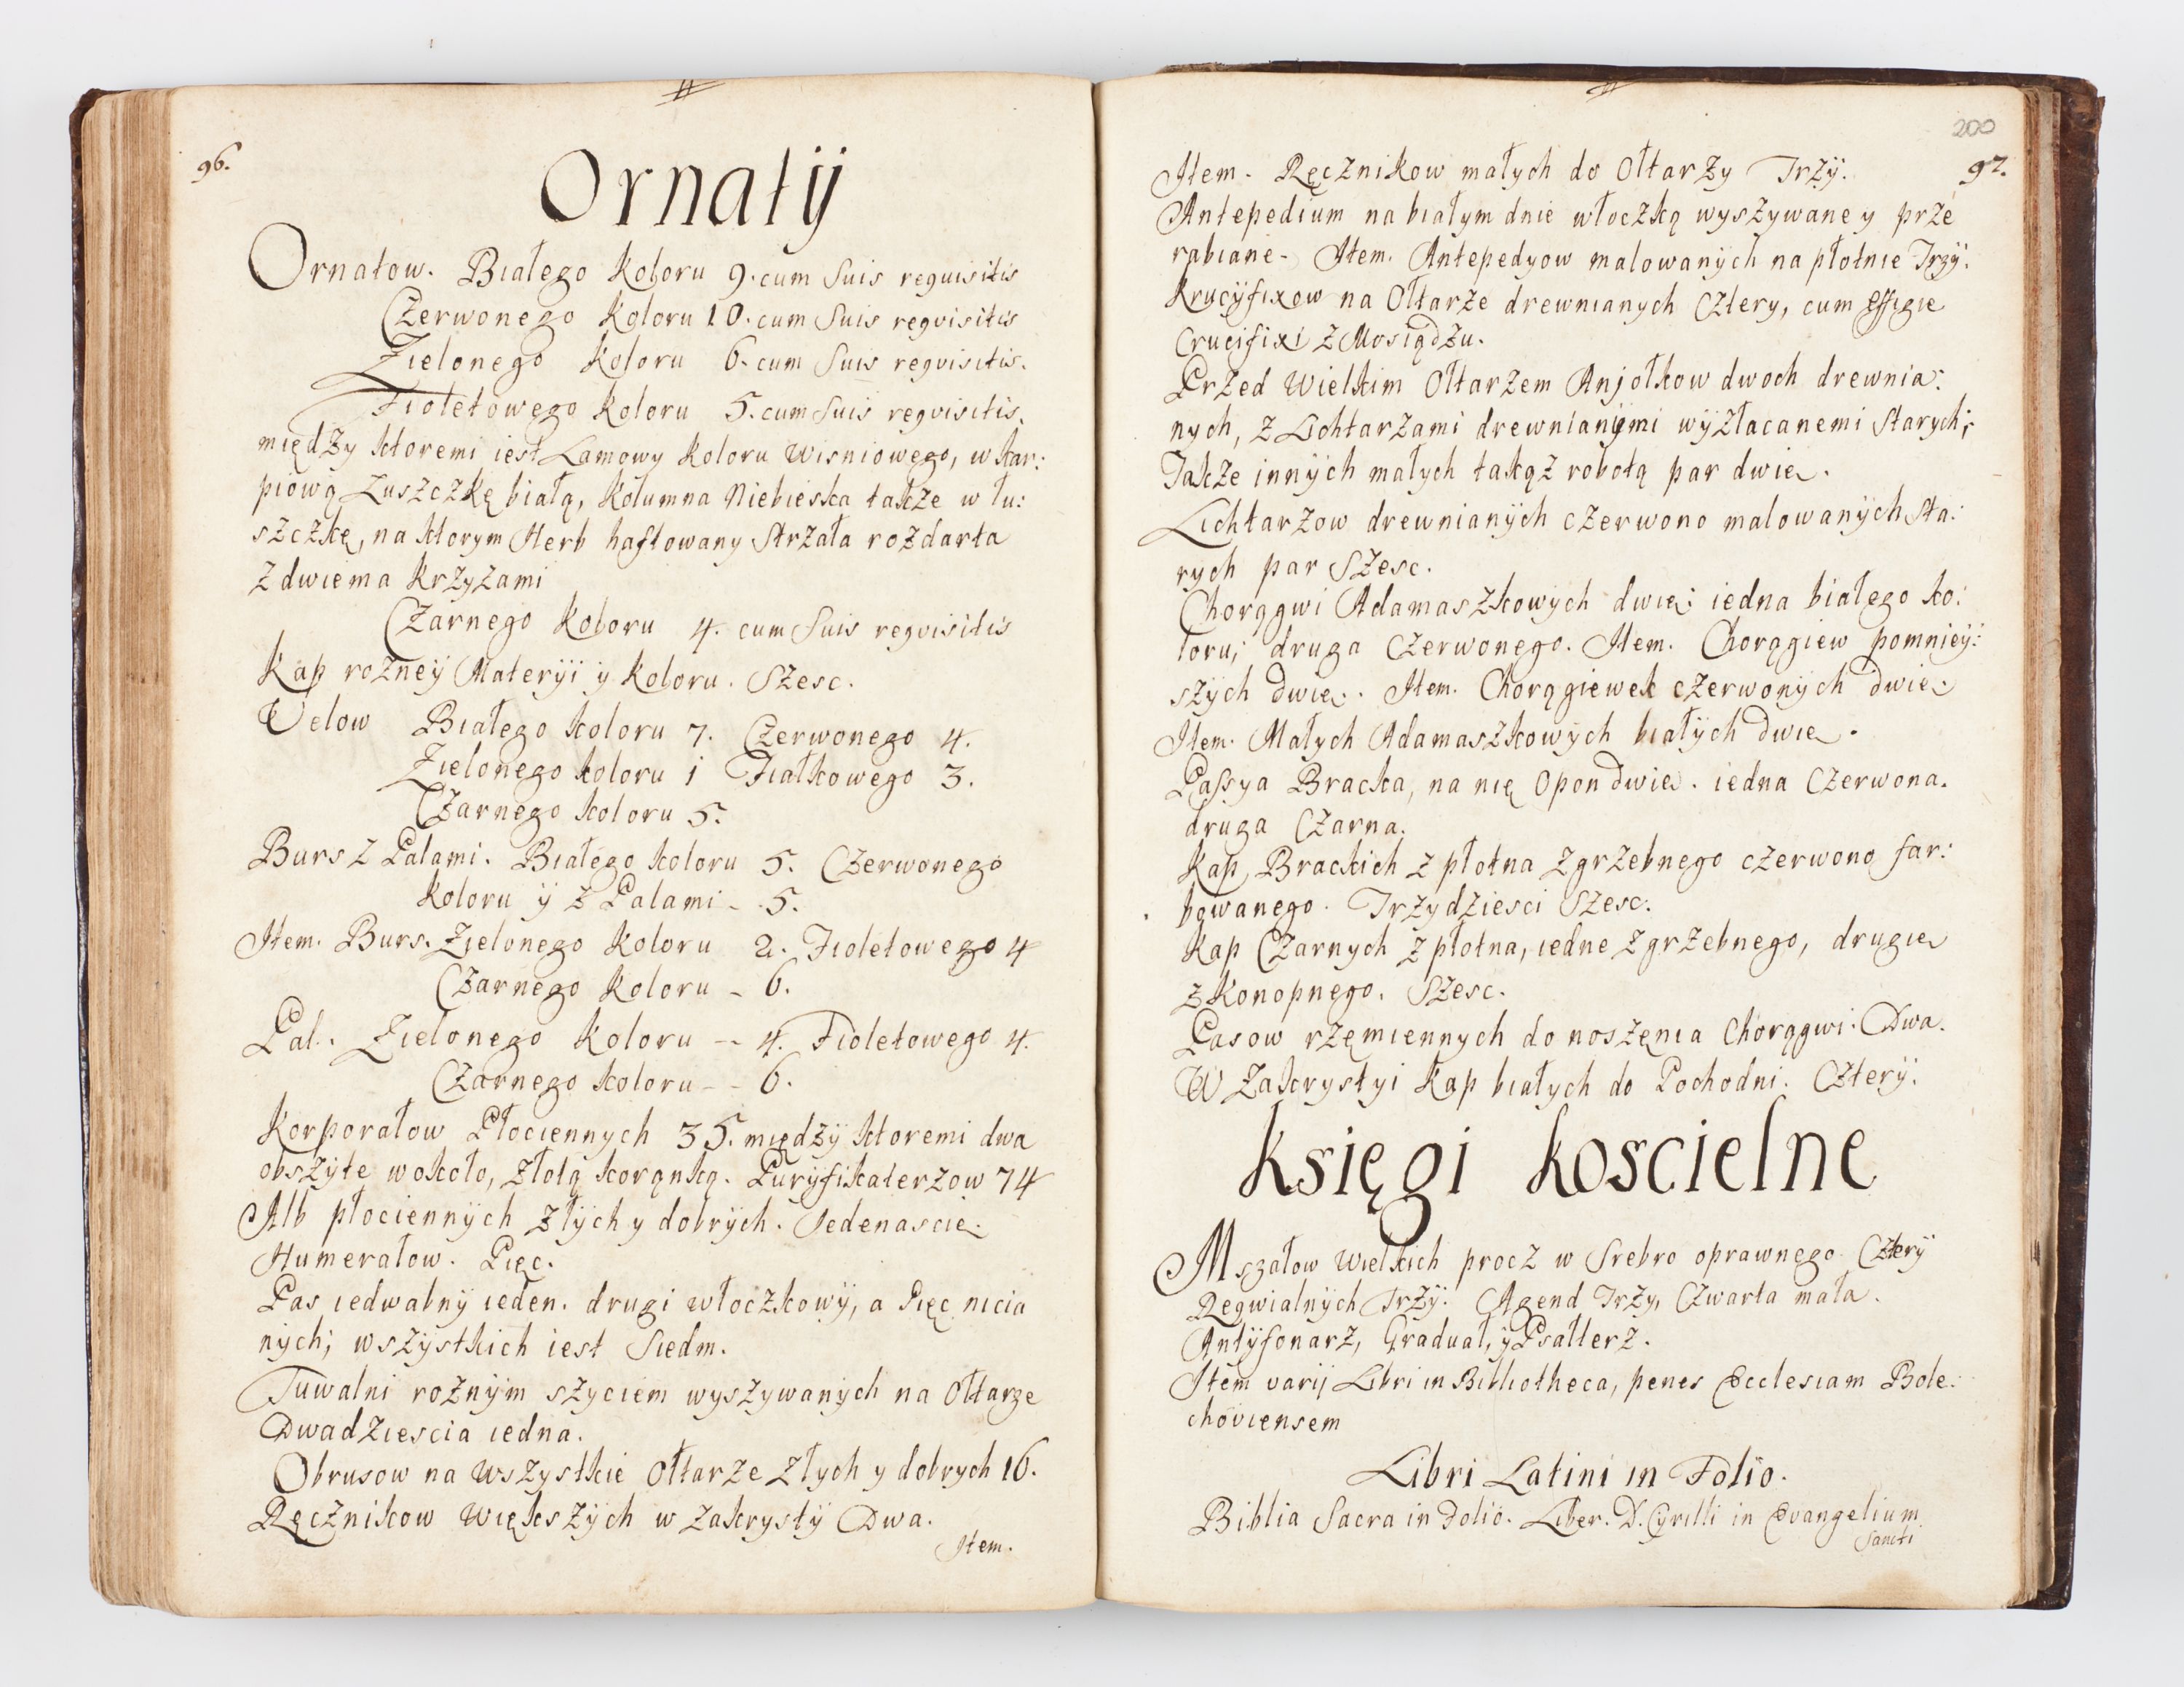 96.
Ornatÿ
Ornatow. Białego koloru 9. cum suis requisitis
Czerwonego koloru 10. cum suis reqvisitis
Zielonego koloru 6. cum suis reqvisitis.
Fioletowego koloru 5. cum suis reqvisitis,
między ktoremi iest Lamowy koloru wisniowego, w kar:
piową Łuszczkę białą, kolumna Niebieska także w łu:
szczkę, na ktorym Herb haftowany Strzała rozdarta
z dwiema krzyzami
Czarnego koloru 4. cum suis reqvisitis
Kap rożneÿ Materÿi ÿ koloru. Szesc.
Velow Białego koloru 7. Czerwonego 4.
Zielonego koloru i Fiałkowego 3.
Czarnego koloru 5.
Burs z Palami. Białego koloru 5. Czerwonego
koloru ÿ z Palami - 5.
Item. Burs. Zielonego koloru 2. Fioletowego 4
Czarnego koloru - 6.
Pal. Zielonego koloru -- 4. Fioletowego 4.
Czarnego koloru -- 6.
Korporałow Płociennych 35. międzÿ ktoremi dwa
obszÿte wokoło, złotą korąnką. Purÿfikaterzow 74
Alb płociennÿch złÿch y dobrÿch. Jedenascie.
Humerałow. Pięc.
Pas iedwabnÿ ieden. drugi włoczkowÿ, a Pięc nicia
nÿch; wszÿstkich iest Siedm.
Tuwalni rożnÿm szÿciem wyszÿwanÿch na Ołtarze
Dwadziescia iedna.
Obrusow na wszystkie Ołtarze złych y dobrych 16.
Ręcznikow większÿch w zakrystÿ Dwa.
Item.
200
97.
Item. Ręcznikow małych do Ołtarzy Trzÿ.
Antepedium na białym dnie włoczką wyszywane y prze
rabiane - Item. Antepedyow malowanÿch na płotnie Trzÿ.
Krucÿfixow na Ołtarze drewnianych Cztery, cum effigie
Crucifixi z Mosiądzu.
Przed Wielkim Ołtarzem Anjołkow dwoch drewnia:
nych, z Lichtarzami drewnianÿmi wÿzłacanemi starych;
Także innÿch małych takąż robotą par dwie.
Lichtarzow drewnianÿch czerwono malowanÿch sta:
rych par Szesc.
Chorągwi Adamaszkowych dwie; iedna białego ko:
loru; druga Czerwonego. Item. Chorągiew pomnieÿ:
szÿch dwie. Item. Chorągiewek czerwonÿch dwie.
Item. Małych Adamaszkowÿch białÿch dwie.
Passya Bracka, na nię Opon dwie. iedna Czerwona.
druga Czarna.
Kap Brackich z płotna zgrzebnego czerwono far:
bowanego. Trzydziesci Szesc.
Kap Czarnych z płotna, iedne zgrzebnego, drugie
z konopnego. Szesc.
Pasow rzęmiennych do noszęnia Chorągwi. Dwa.
W zakrystyi Kap białych do Pochodni. Czterÿ.
Księgi koscielne
Mszałow wielkich procz w Srebro oprawnego Czterÿ
Reqwialnÿch Trzÿ. Agend Trzy, Czwarta mała.
Antÿfonarz, Gradual, ÿ Psałterz.
Item varij Libri in Bibliotheca, penes Ecclesiam Bole:
choviensem
Libri Latini in Folio.
Biblia Sacra in Folio. Liber. D. Cyrilli in Evangelium
Sancti